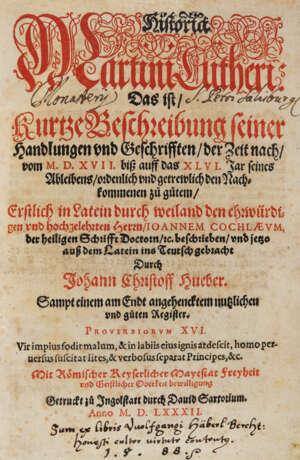 Historia
Martini Lutheri:
Monasterij S. Petri Salisburg
Das ist/
Kurtze Beschreibung seiner
Handlungen vnd Geschrifften/ der Zeit nach/
vom M. D. XVII. biß auff das XLVI. Jar seines
Ableibens/ ordenlich vnd getrewlich den Nach-
kommenen zů gůtem/
Erstlich in Latein durch weiland den ehrwürdi-
gen vnd hochgelehrten Herrn/ IOANNEM COCHLÆVM,
der heiligen Schrifft Doctorn/ ꝛc. beschrieben/ vnd jetzo
auß dem Latein ins Teutsch gebracht
Durch
Johann Christoff Hueber.
Sampt einem am Endt angehencktem nutzlichen
vnd gůten Register.
PROVERBIORVM XVI.
Vir impius fodit malum, & in labiis eius ignis ardescit, homo per-
uersus suscitat lites, & verbosus separat Principes, &c.
Mit Römischer Keyserlicher Mayestat Freyheit
vnd Geistlicher Oberkeit bewilligung
Getruckt zů Ingolstatt durch Dauid Sartorium.
Anno M. D. LXXXII.
Sum ex libris Wolfgangi Häberl Bercht:
Honesti cultor virtute
1 5 8 8